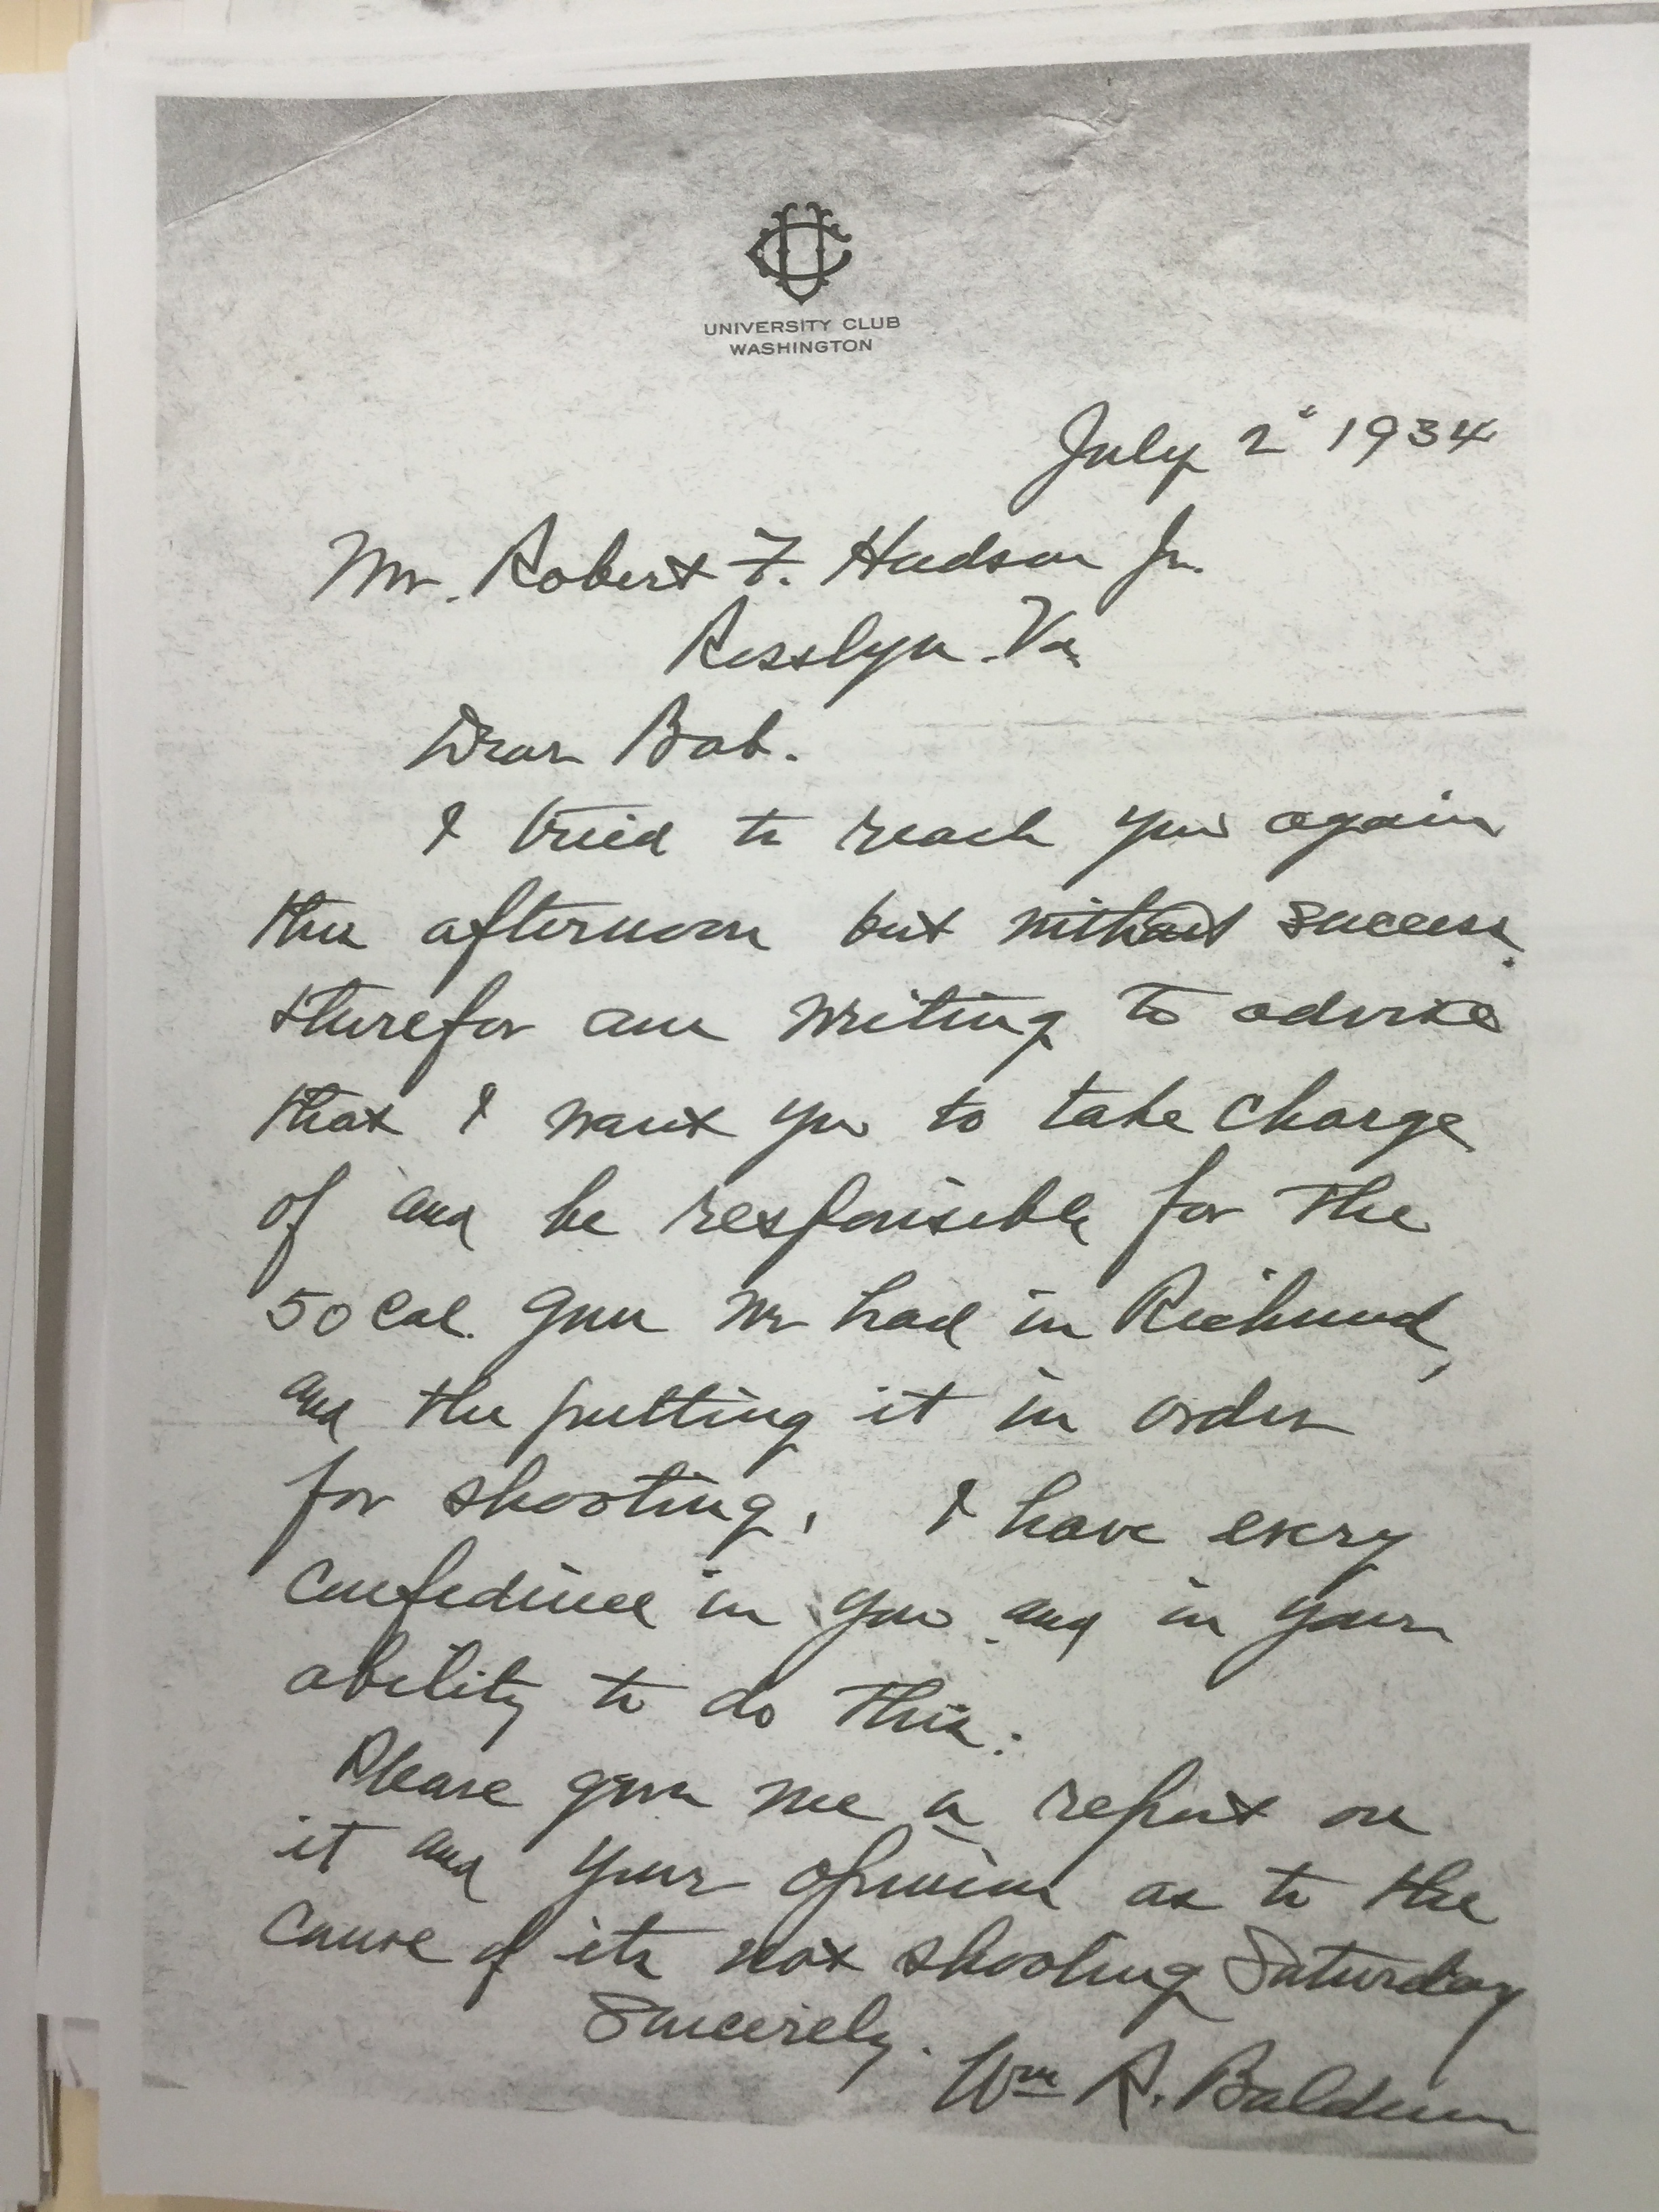 UC
UNIVERSITY CLUB
WASHINGTON
July 2" 1934
Mr. Robert F. Hudson Jr.
Rosslyn. Va.
Dear Bob.
I tried to reach you again
this afternoon but without success.
therefor am writing to advise
that I want you to take charge
of and be responsible for the
50 Cal. gun we had in Richmond,
and the putting it in order
for shooting. I have every
confidence in you and in your
ability to do this.
Please give me a report on
it and your opinion as to the
cause of its not shooting Saturday
Sincerely.
Wm R. Baldwin